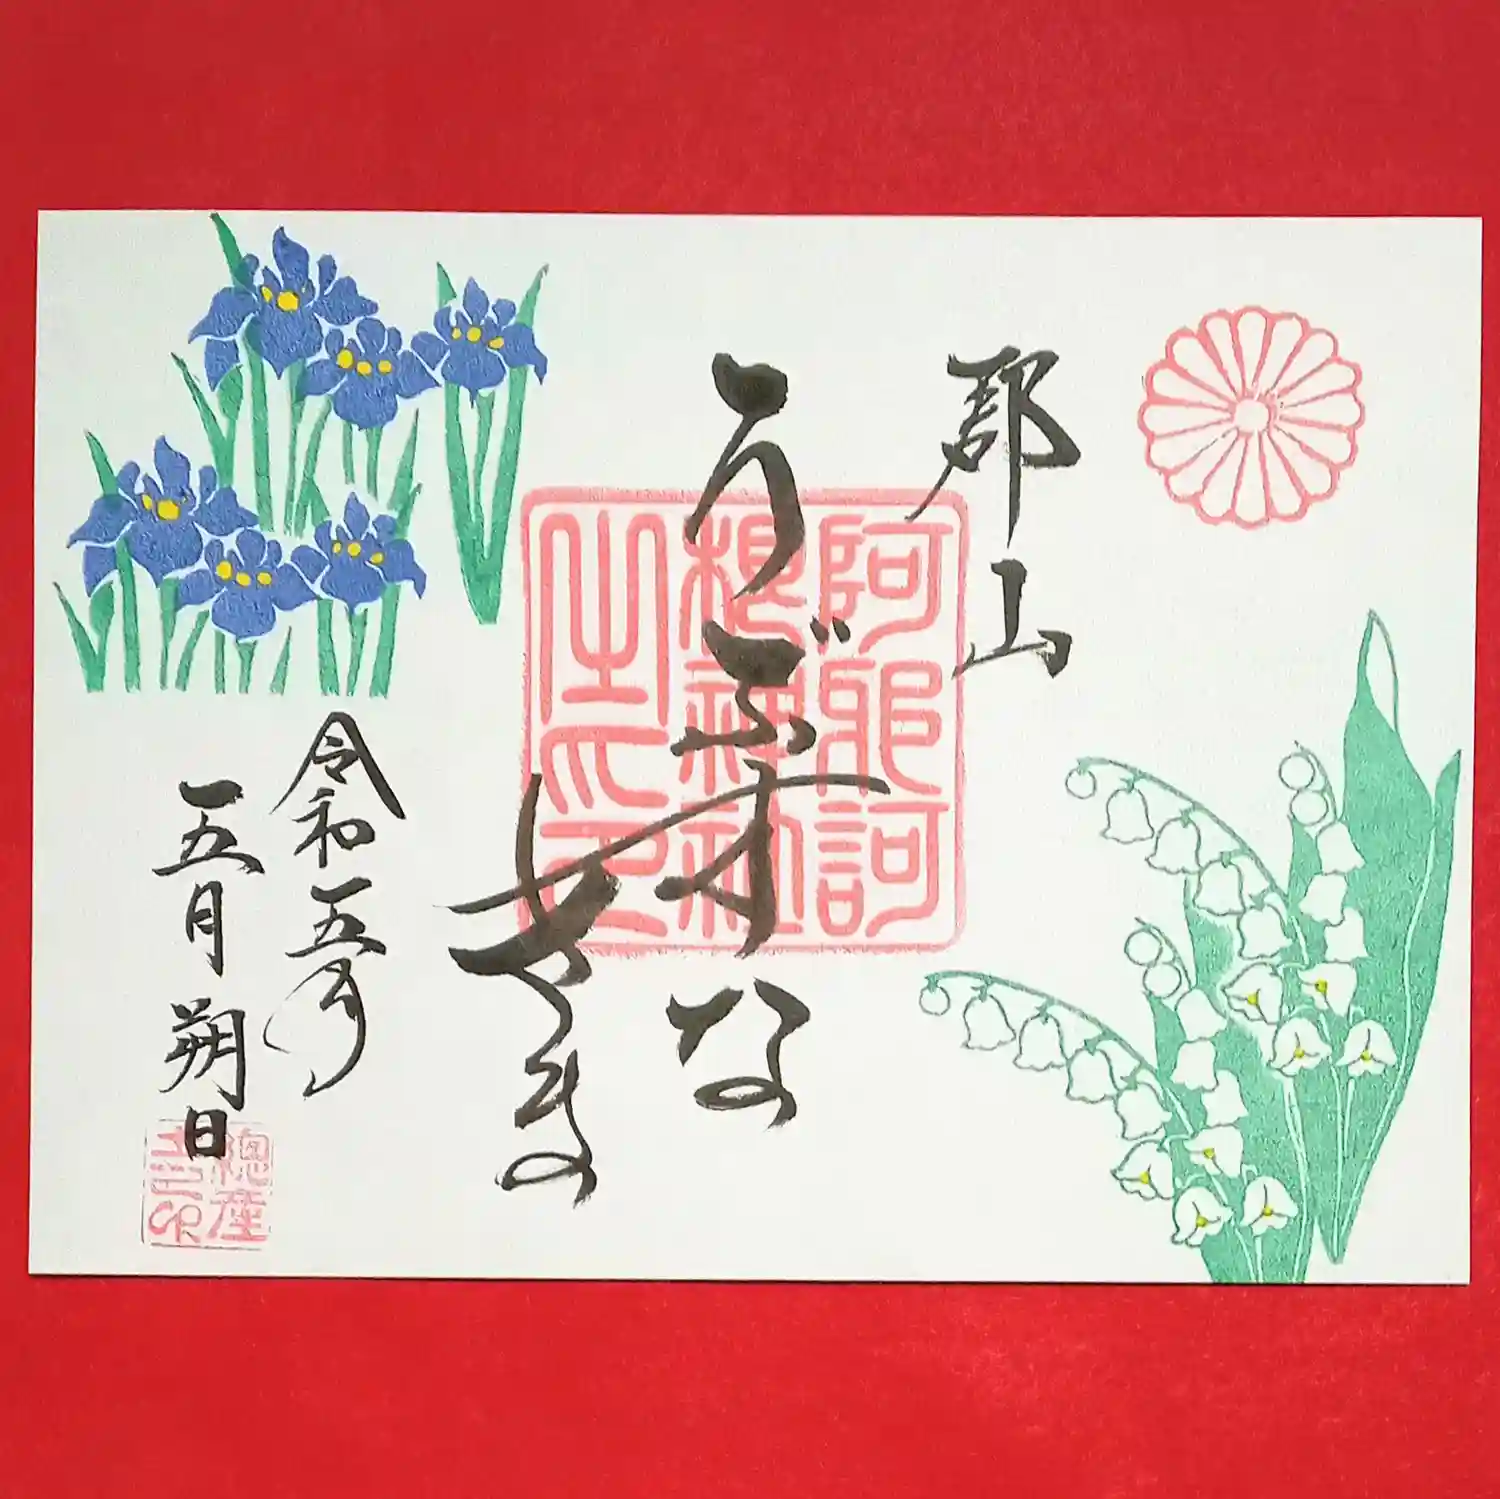 郡山
うぶすな
阿邪訶
根神社
之印
令和五年
五月朔日
總産
土之印